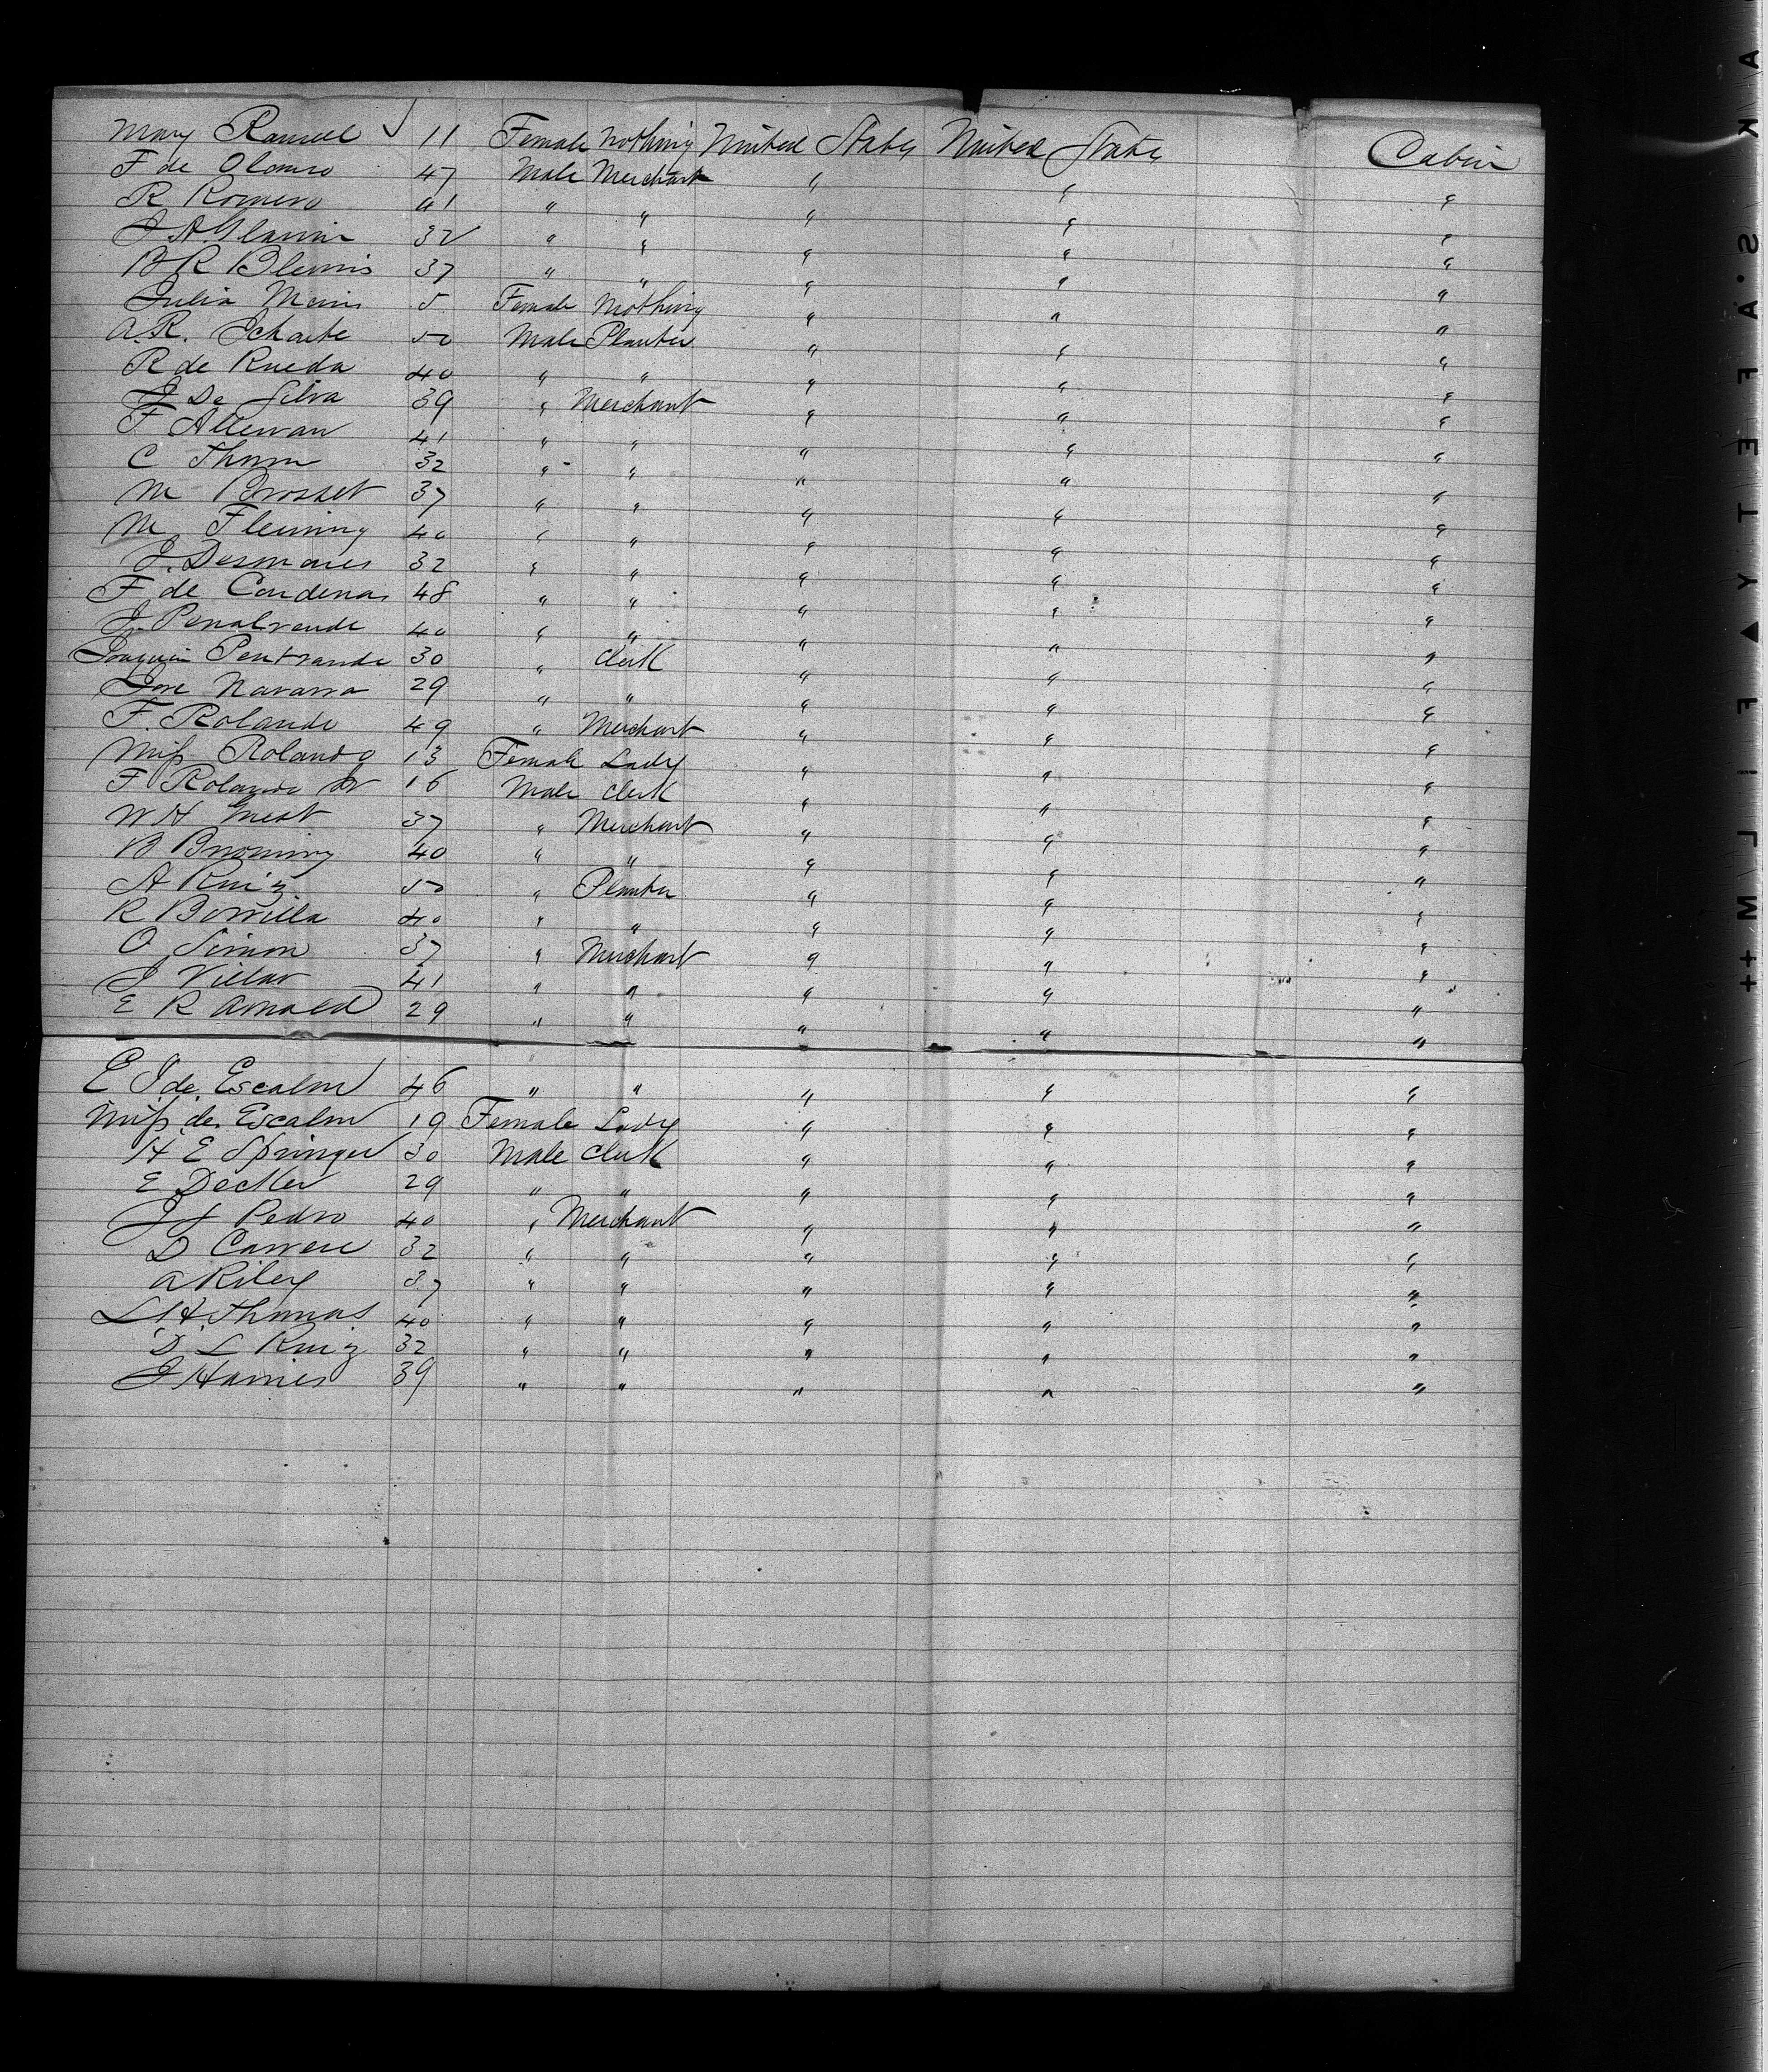 Mary 11 Female Nothing United States United States Cabin
F de 47 Male Merchant " " "
R Romero 41 " " " " "
J A 32 " " " " "
B R 37 " " " " "
Julia 5 Female Nothing " " "
A. R. 50 Male Planter " " "
R de Rueda 40 " " " " "
J De Silva 39 " Merchant " " "
F 41 " " " " "
C Thorn 32 " " " " "
M Brosset 37 " " " " "
M Fleming 40 " " " " "
J. Desmares 32 " " " " "
F de Cardenas 48 " " " " "
J. 40 " " " " "
Joaquin 30 " Clerk " " "
Jose Navarra 29 " " " " "
F. Rolando 49 " Merchant " " "
Miss Rolando 13 Female Lady " " "
F Rolando Jr 16 Male Clerk " " "
W H 37 " Merchant " " "
B 40 " " " " "
A Ruiz 50 " Planter " " "
R 40 " " " " "
O Simon 37 " Merchant " " "
J Villar 41 " " " " "
E R Arnold 29 " " " " "
E J. de 46 " " " " "
Miss de 19 Female Lady " " "
H E Springer 30 Male Clerk " " "
E Decker 29 " " " " "
J J Pedro 40 " Merchant " " "
D 32 " " " " "
A Riley 37 " " " " "
L H. Thomas 40 " " " " "
D L Ruiz 32 " " " " "
J Harries 39 " " " " "
SAFETY▲FILM++